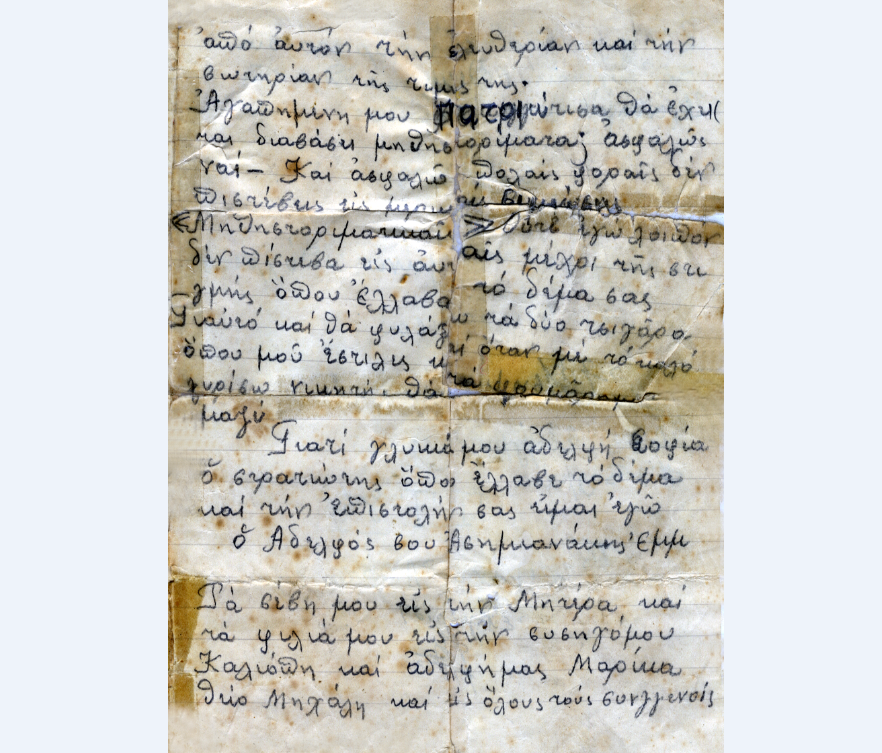 ἀπό αὐτόν τήν ἐλευθερίαν καί τήν
σωτηρίαν τῆς τιμῆς της.
Ἀγαπημένη μου πατριώτισα θά ἔχει(
ται διαβάσει μηθηστορίματα; ἀσφαλῶς
ναί — Καί ἀσφαλῶ πολαίς φοραῖς δέν
πιστέβεις εἰς
«Μηθηστοριματικαί» Οὔτε ἐγώ λοιπόν
δέν πίστεβα εἰς αὐταίς μέχρι τῆς στι
γμῆς ὅπου ἔλλαβα τό δέμα σας
Γιαυτό καί θά φυλάξω τά δύο τσιγάρα
ὅπου μοῦ ἔστιλες καί ὅταν μέ τό καλό
γυρίσω νικητής θά τά
μαζύ
Γιατί γλυκιά μου ἀδελφή Σοφία
ὅ στρατιώτης ὅπου ἔλλαβε τό δέμα
καί τήν Ἐπιστολήν σας εἴμαι ἐγῶ
ὅ Ἀδελφός σου Ἀσημιανάκης Ἐμμ
Τά σέβη μου εἰς τήν Μητέρα καί
τά φιλιά μου εἰς τήν συσηγόμου
Καλιόπη καί ἀδελφήμας Μαρίκα
θείο Μηχάλη καί εἰς ὅλους τούς συνγγενοίς